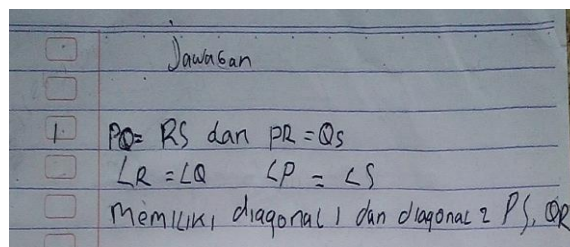 Jawaban
1 PQ = RS dan PR = QS
∠R = ∠Q ∠P = ∠S
Memiliki diagonal 1 dan diagonal 2 PS, QR